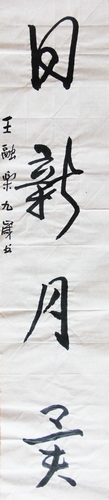 日新月異
王融樂九歲书